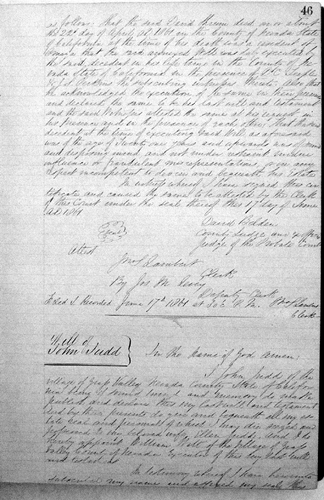 46
as follows, that the said David Thom died on or about
the 22nd day of April AD 1861 in the County of Nevada State
of California at the time of his death was a resident of
the said decedent in his life time in the County of Ne-
vada State of California in the presence of
the subscribing witnesses thereto also that
he acknowledged the execution of the same in their presence
and declared the same to be his last will and testament
and the said witnesses attested the same at his request in
his presence and in the presence of each other; that the said
decedent at the time of executing said Will as aforesaid
was of the age of twenty one years and upwards was of sound
and disposing mind and not under restraint undue
influence or fraudulent misrepresentation or in any
respect incompetent to devise and bequeath his Estate
In witness whereof I have signed this Cer-
tificate and caused the same to be attested by the Clerk
of this Court under the seal thereof this 17 day of June
AD 1861.
David Belden
County Judge and
Judge of the Probate Court
Attest
Lambert
Clerk
By Jos M.
Deputy Clerk
Filed & Recorded June 17th 1861 at
Clerk
Will of
John Judd
In the name of God Amen:
I John Judd of the
village of Grass Valley Nevada County State of Califor-
nia being of sound mind and memory do make
publish and declare this my last will and testament
and by these presents do give and bequeath all my es-
tate real and personal of which I may die seized and
possessed to my beloved wife Ellen Judd; and I do
hereby appoint William of the village of Grass
Valley County of Nevada Executor of this my last will
and testament.
In testimony whereof I have hereunto
subscribed my name and affixed my seal this